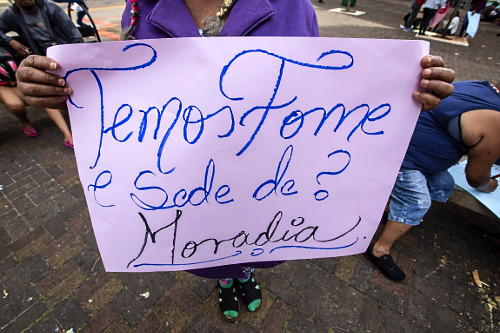 Temos Fome
e Sede de?
Moradia.